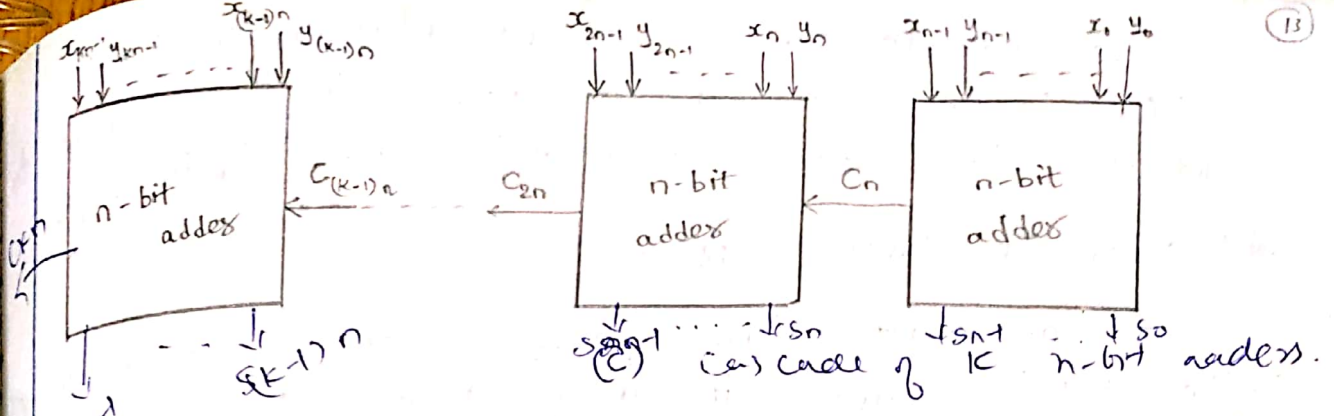 13
x(k-1)n y(k-1)n x2n-1 y2n-1 xn yn xn-1 yn-1 x0 y0
ykn-1
n-bit adder C(k-1)n C2n n-bit adder Cn n-bit adder
Ckn
S(k-1)n Sn Sn-1 S0
(c) cascade of K n-bit adders.